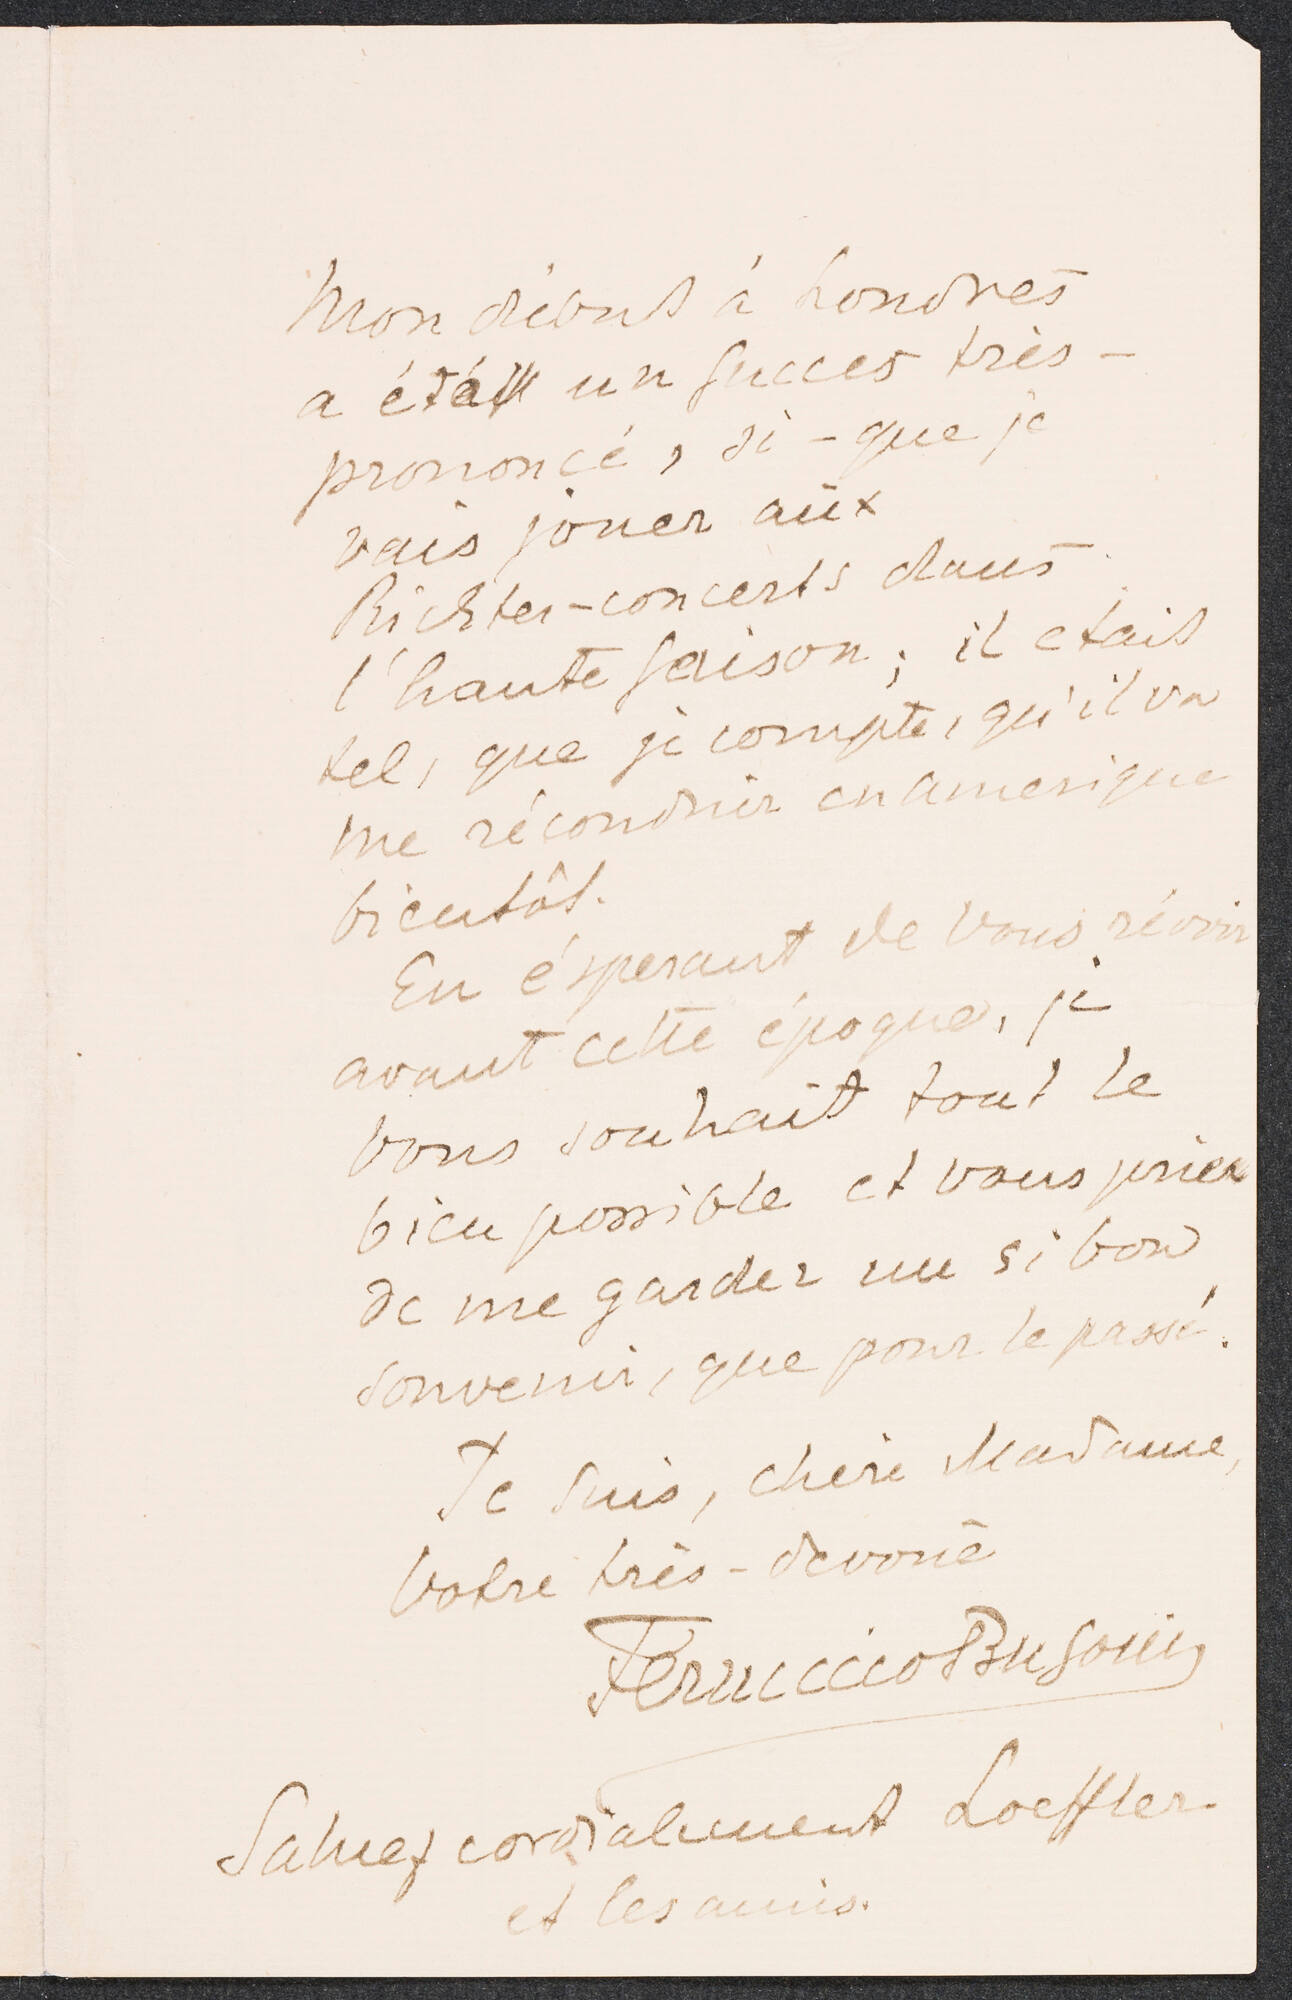 Mon début à Londres
a été un succes très-
prononcé, si-que je
vais jouer aux
Richter-concerts dans
l'haute saison; il etait
tel, que je compte, qu'il va
me réconduir en amerique
bientôt.
En ésperant de vous révoir
avant cette époque, je
vous souhait tout le
bien possible et vous prier
de me garder un si bon
souvenir, que pour le passé.
Je suis, chère Madame,
Votre très-devoué
Ferruccio Busoni
Saluez cordialement Loeffler
et les amis.